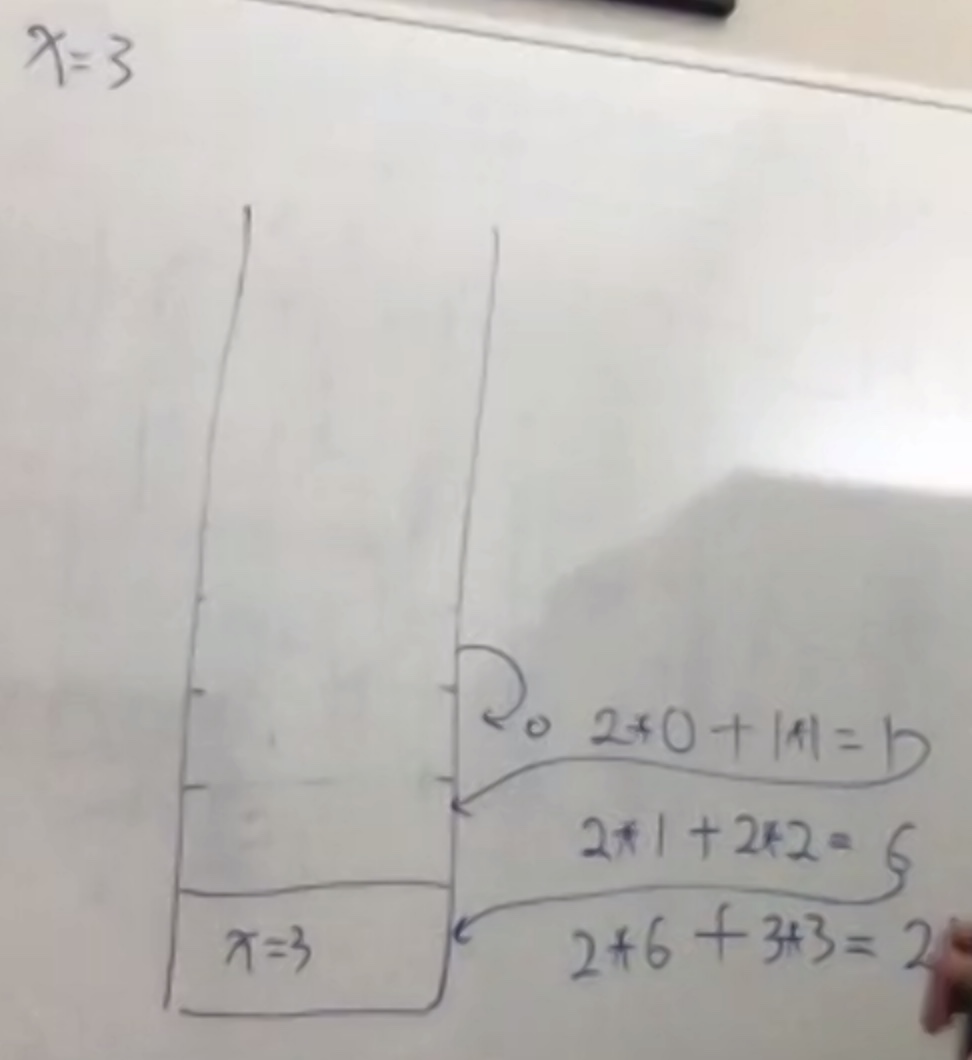 x=3
0 2*0+1*1=1
2*1+2*2=6
x=3 2*6+3*3=2